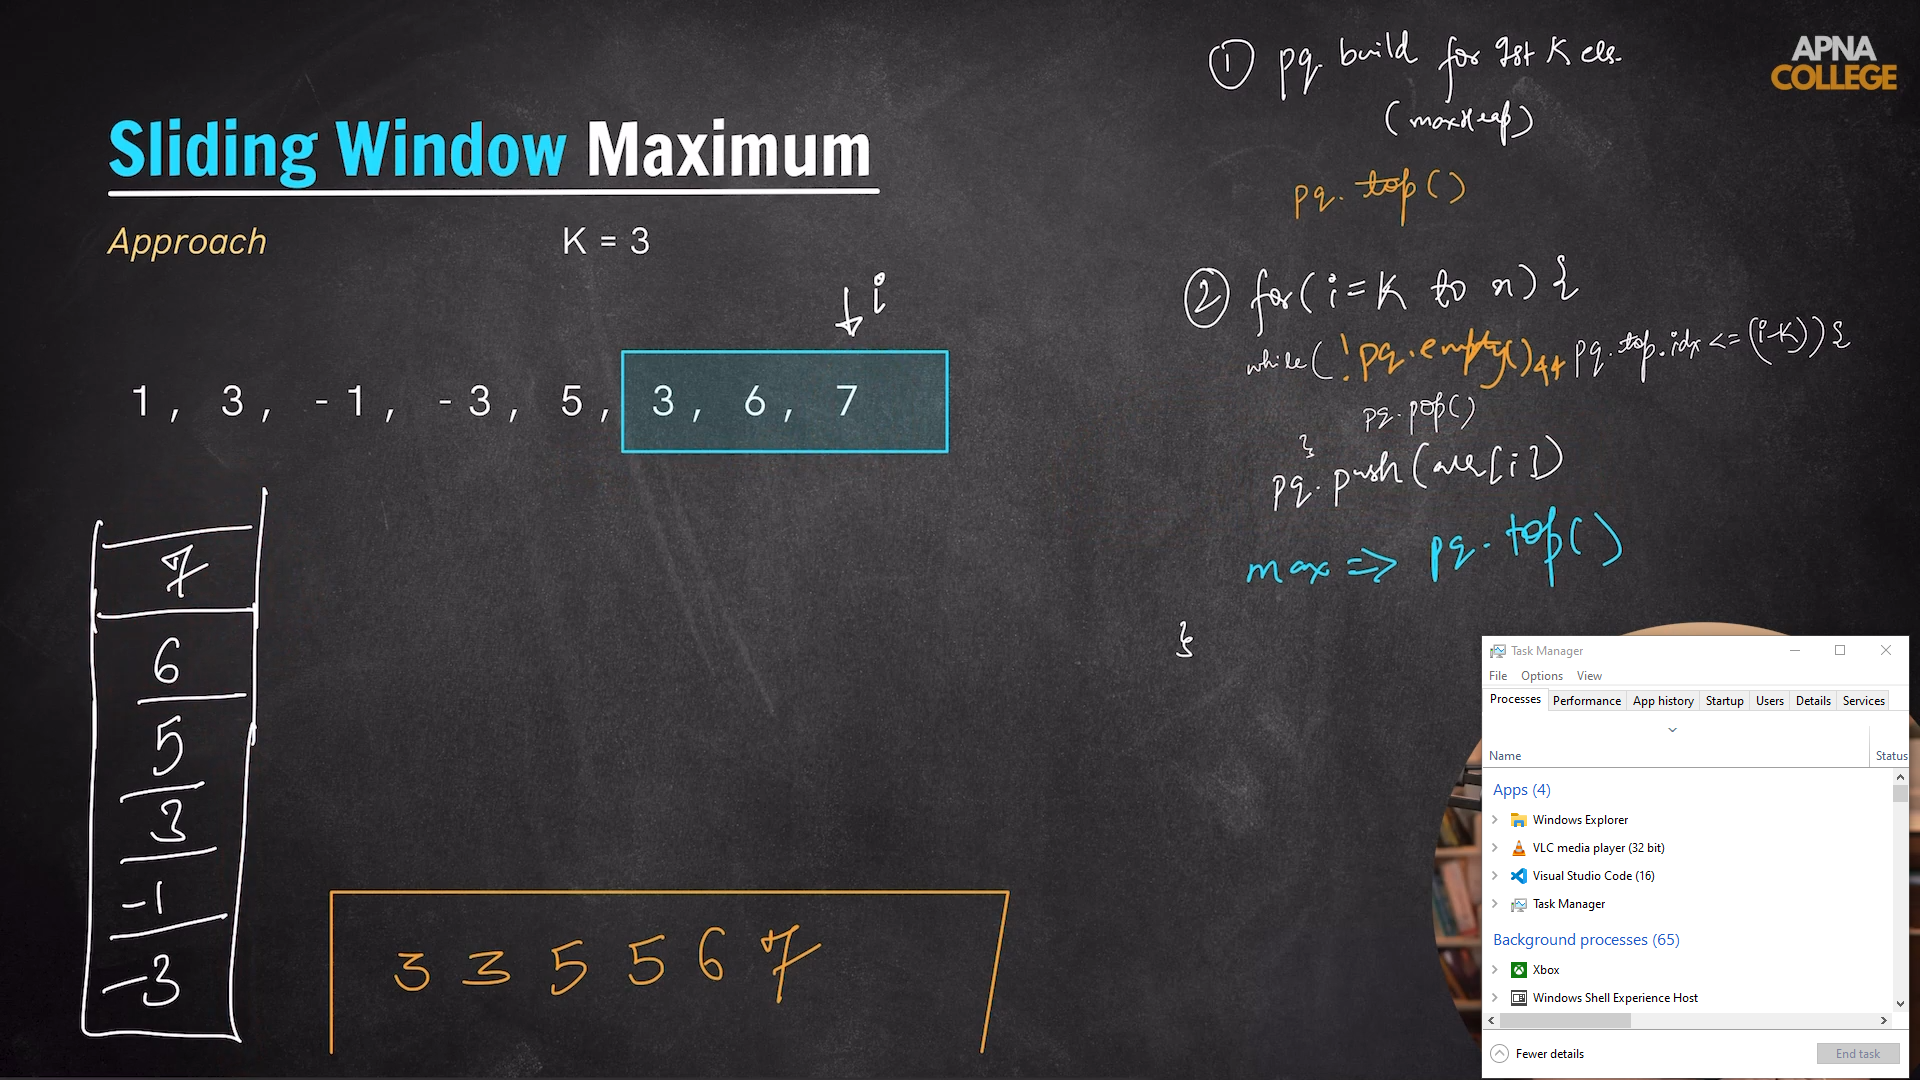 APNA
COLLEGE
Sliding Window Maximum
Approach
K = 3
i
1 , 3 , -1 , -3 , 5 , 3 , 6 , 7
7
6
5
3
-1
-3
3 3 5 5 6 7
① pq build for 1st K els.
(maxHeap)
pq. top()
② for(i=K to n) {
while( !pq.empty() && pq.top.idx <= (i-K)) {
pq.pop()
}
pq.push(arr[i])
max => pq.top()
}
Task Manager
File Options View
Processes Performance App history Startup Users Details Services
Name Status
Apps (4)
Windows Explorer
VLC media player (32 bit)
Visual Studio Code (16)
Task Manager
Background processes (65)
Xbox
Windows Shell Experience Host
Fewer details End task